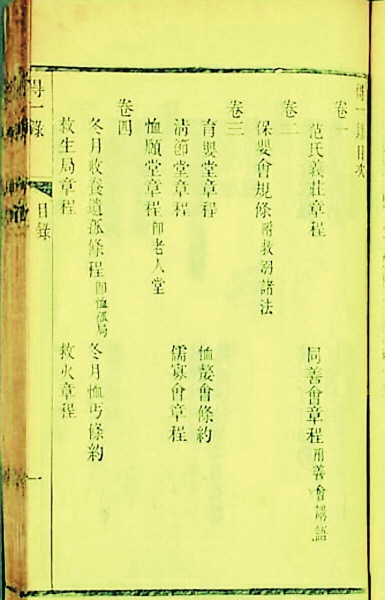 得一錄目次
卷一
范氏義莊章程 同善會章程附善會講語
卷二
保嬰會規條附救溺諸法
卷三
育嬰堂章程 恤嫠會條約
清節堂章程 儒寡會章程
恤頤堂章程即老人堂
卷四
冬月收養遺孤條程即恤孤局 冬月恤丐條約
救生局章程 救火章程
得一錄 目錄 一